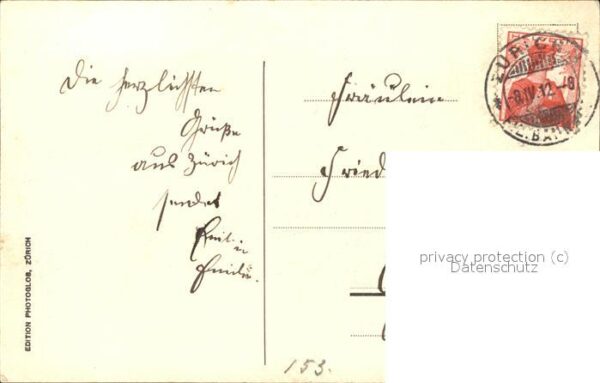 Die herzlichsten
Grüße
aus Zürich
sendet
Emil
EDITION PHOTOGLOB, ZÜRICH
Fräulein
Fried
ZÜRICH
8.IV.12
privacy protection (c)
Datenschutz
153.